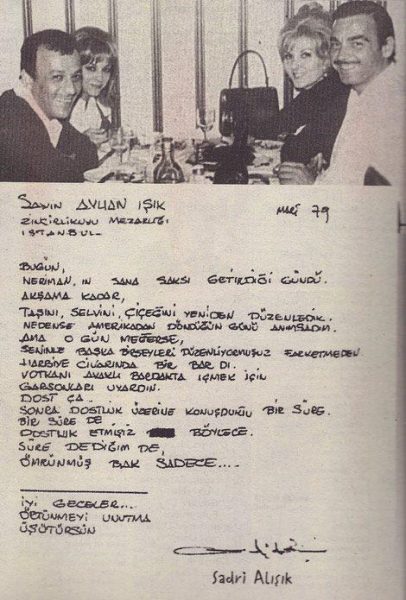 SAYIN AYHAN IŞIK
MART 79
ZİNCİRLİKUYU MEZARLIĞI
İSTANBUL
BUGÜN,
NERİMAN, IN SANA SAKSI GETİRDİĞİ GÜNDÜ.
AKŞAMA KADAR,
TAŞINI, SELVİNİ, ÇİÇEĞİNİ YENİDEN DÜZENLEDİK.
NEDENSE AMERİKADAN DÖNDÜĞÜN GÜNÜ ANIMSADIM.
AMA O GÜN MEĞERSE,
SENİNLE BAŞKA BİRŞEYLERİ DÜZENLİYORMUŞUZ FARKETMEDEN.
HARBİYE CİVARINDA BİR BAR DI.
VOTKANI AYAKLI BARDAKTA İÇMEK İÇİN
GARSONLARI UYARDIN.
DOST ÇA.
SONRA DOSTLUK ÜZERİNE KONUŞDUĞU BİR SÜRE.
BİR SÜRE DE
DOSTLUK ETMİŞİZ BÖYLECE.
SÜRE DEDİĞİM DE,
ÖMRÜNMÜŞ BAK SADECE....
İYİ GECELER...
ÖRTÜNMEYİ UNUTMA
ÜŞÜTÜRSÜN
Sadri Alışık